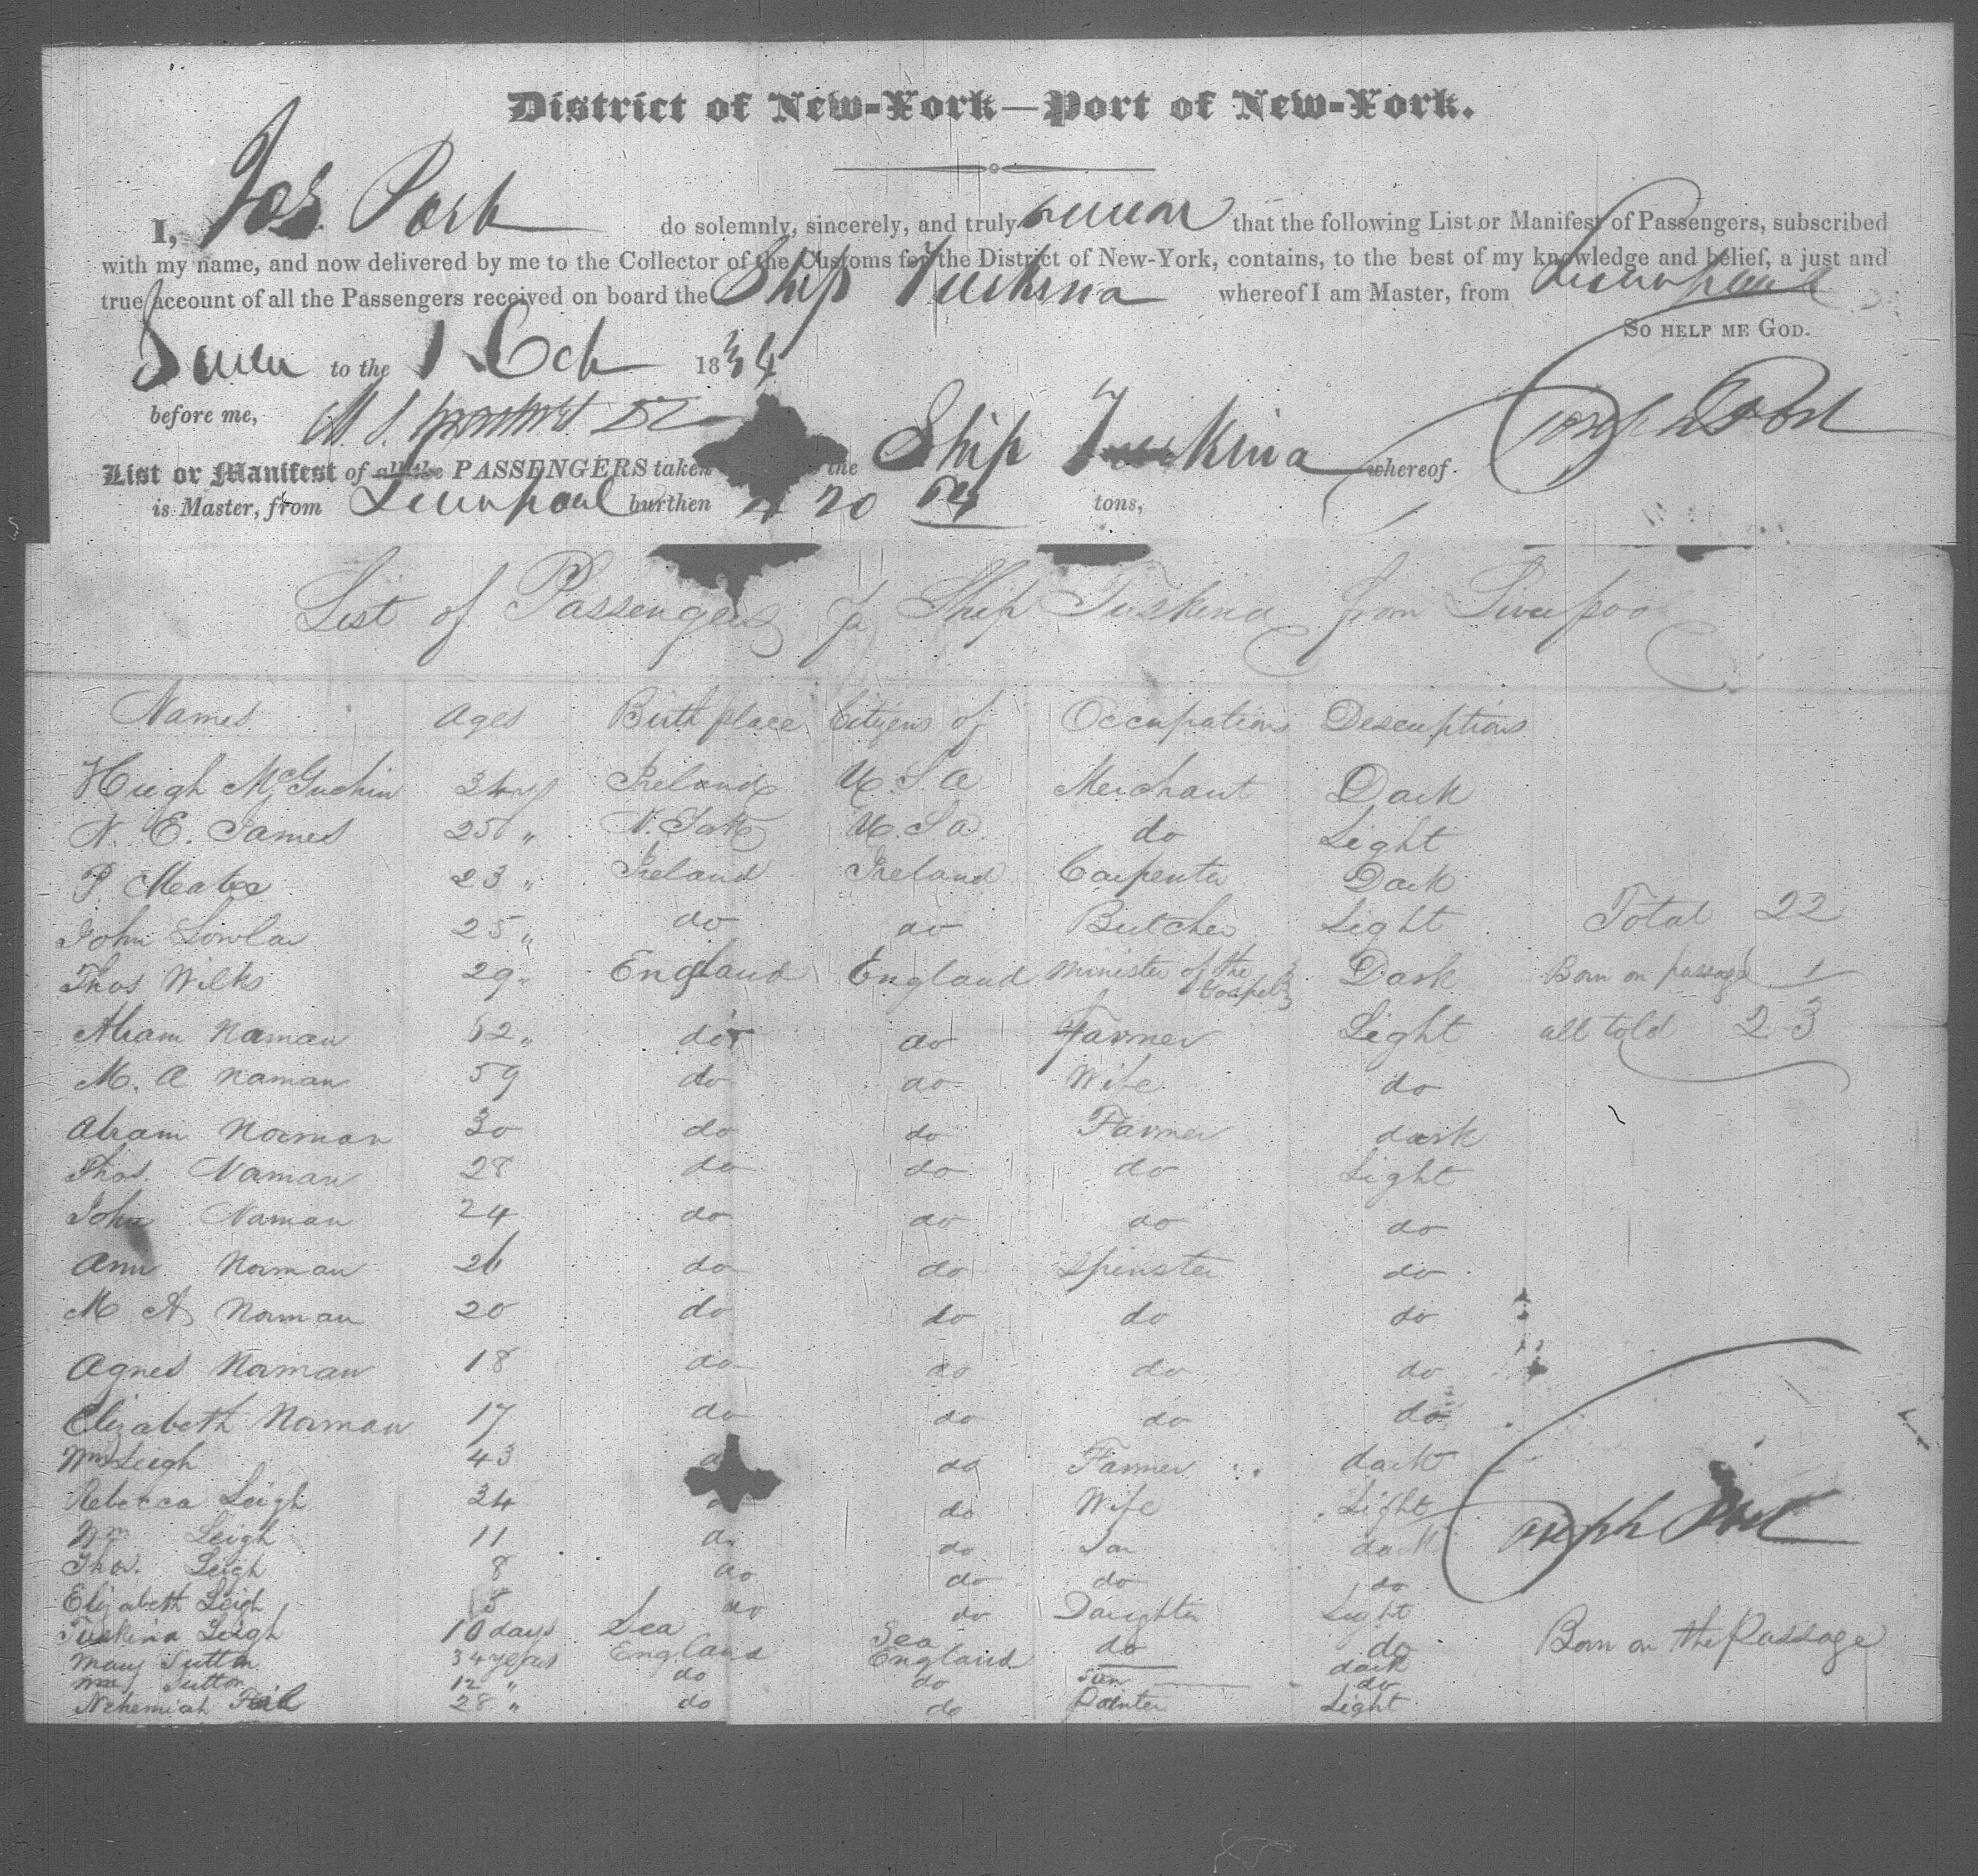 District of New-York—Port of New-York.
I, Jos Post do solemnly, sincerely, and truly swear that the following List or Manifest of Passengers, subscribed
with my name, and now delivered by me to the Collector of the Customs for the District of New-York, contains, to the best of my knowledge and belief, a just and
true account of all the Passengers received on board the Ship Tuskina whereof I am Master, from Liverpool
So help me God.
Sworn to the 1 Oct 1834
before me,
Joseph Post
List or Manifest of all the PASSENGERS taken the Ship Tuskina whereof
is Master, from Liverpool burthen 420 tons,
List of Passengers p Ship Tuskina from Liverpool
Names Ages Birth place Citizens of Occupations Descriptions
Hugh McGuchin 34 Ireland U.S.A Merchant Dark
N. E. James 25 " N. York U.S.A. do Light
P. 23 " Ireland Ireland Carpenter Dark
John Lowlar 25 " do do Butcher Light Total 22
Thos Wilks 29 " England England Minister of the Gospel Dark Born on passage 1
Abram Norman 62 " do do Farmer Light all told 23
M. A Norman 59 do do Wife do
Abram Norman 30 do do Farmer dark
Thos. Norman 28 do do do Light
John Norman 24 do do do do
Ann Norman 26 do do Spinster do
M A Norman 20 do do do do
Agnes Norman 18 do do do do
Elizabeth Norman 17 do do do do
Wm Leigh 43 do Farmer dark
Rebecca Leigh 34 do Wife Light
Joseph Post
Wm Leigh 11 do do Son dark
Thos. Leigh 8 do do do do
Elizabeth Leigh 5 do do Daughter Light
Tuskina Leigh 10 days Sea Sea do do Born on the Passage
Mary Sutton 34 years England England dark
Wm Sutton 12 " do do Son do
Nehemiah 28 " do do Painter Light